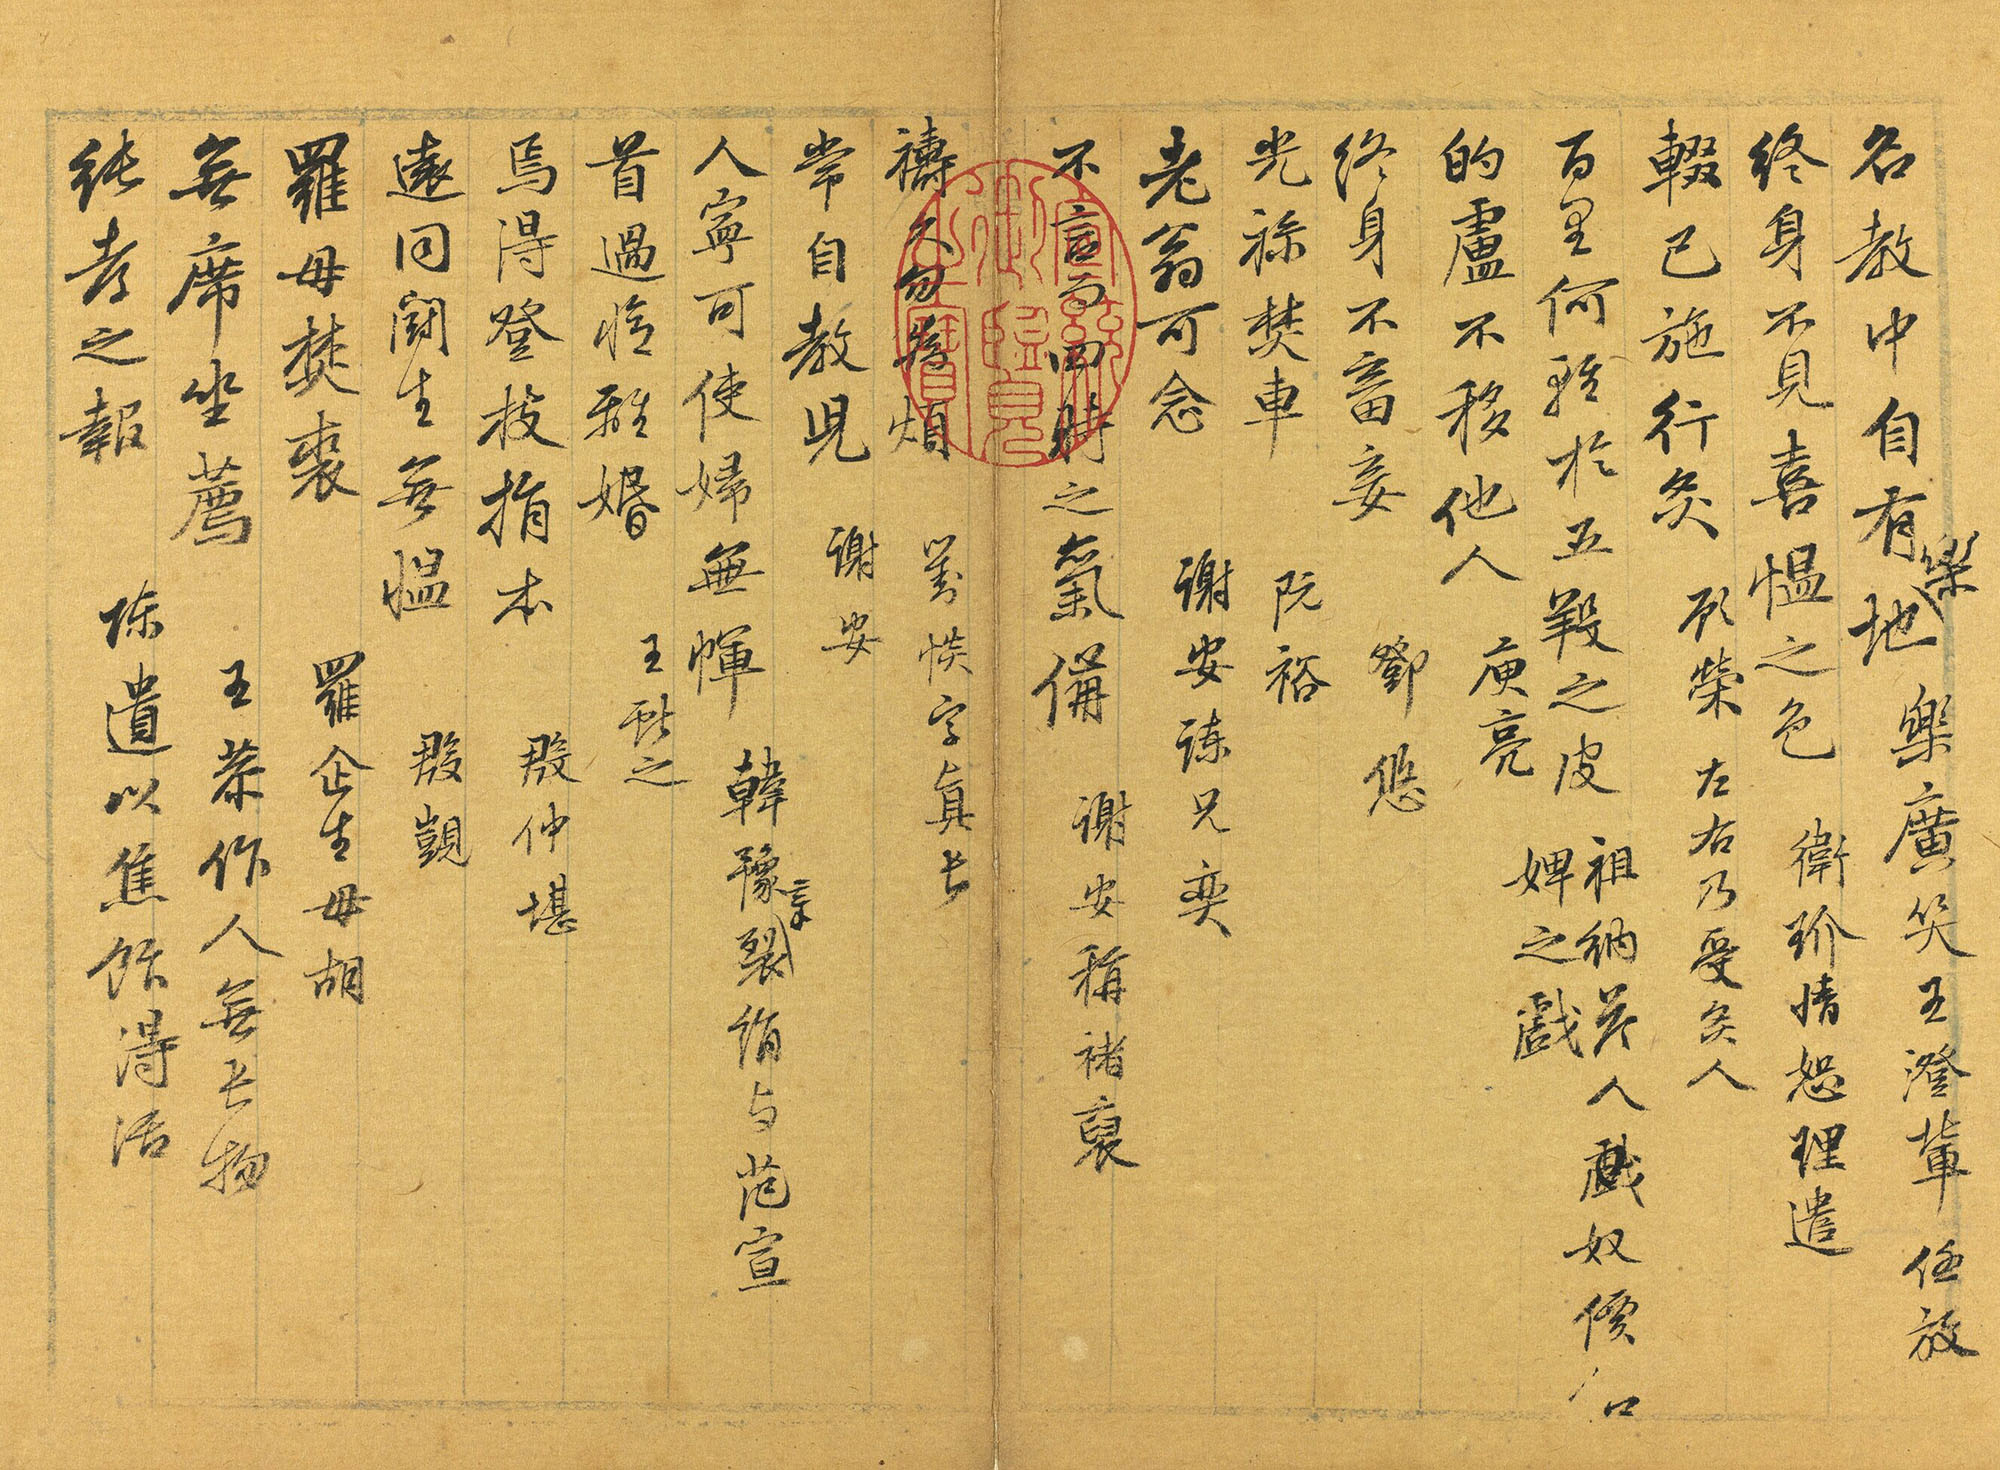 名教中自有樂地 樂廣笑王澄輩任放
終身不見喜慍之色 衛玠情恕理遣
輟己施行炙 顧榮 左右乃受炙人
百里何軽於五羖之皮 祖納答人戲奴價
婢之戲
的盧不移他人 庾亮
終身不畜妾 鄧
光祿焚車 阮裕
老翁可念 謝安諫兄奕
不言而四時之氣備 謝安稱褚裒
禱久勿為煩 劉惔字真長
常自教児 謝安
人寧可使婦無幝 韓豫章裂絹与范宣
首過悔離婚 王獻之
焉得登枝捐本 殷仲堪
遠同鬪生無慍 殷覬
羅母焚裘 羅企生母胡
無席坐薦 王恭作人無長物
純孝之報 陳遺以焦飯得活
宣統御覽之寶